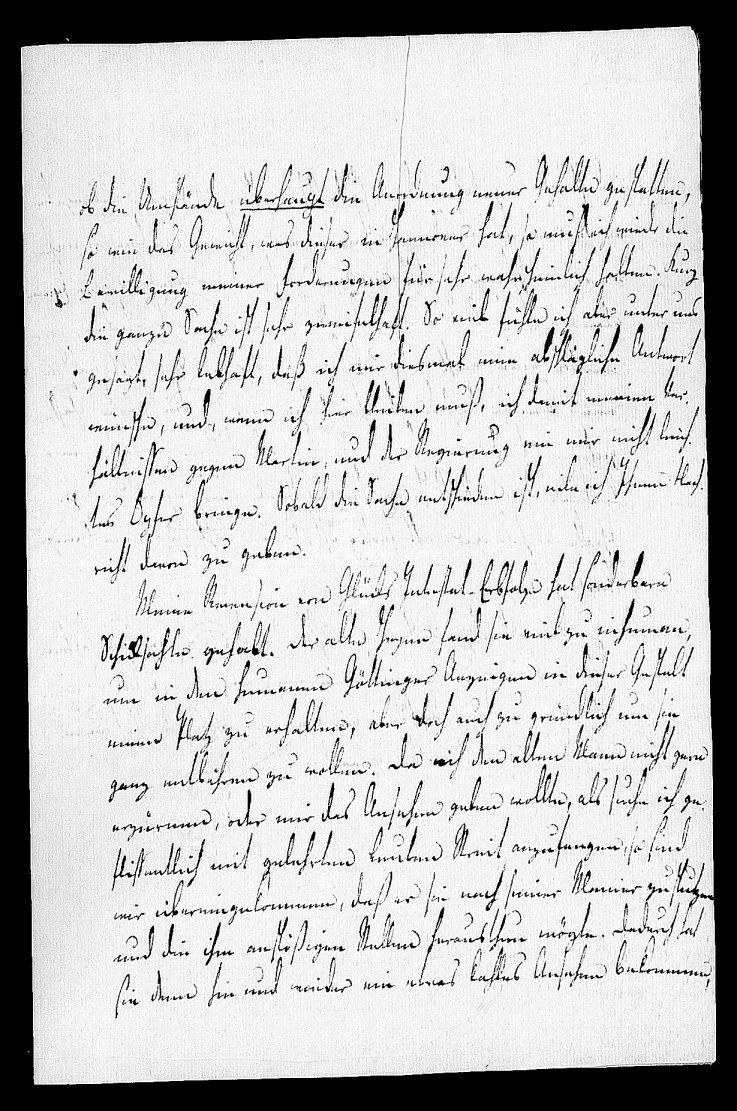 ob die Umstände überhaupt die Anordnung neuer Gehalte gestatten,
so wie das Gewicht, was dieser in Hannover hat, so muß ich wieder die
Bewilligung meiner Forderungen für sehr wahrscheinlich halten. Kurz
die ganze Sache ist sehr zweifelhaft. So viel fühle ich aber unter uns
gesagt, sehr lebhaft, daß ich mir diesmal eine abschlägliche Antwort
wünsche, und, wenn ich hier bleiben muß, ich damit meinen Ver-
hältnissen gegen Martin, und der Regierung ein mir nicht leich-
tes Opfer bringe. Sobald die Sache entschieden ist, eile ich Ihnen Nach-
richt davon zu geben.
Meine Recension von Glücks Intestat-Erbfolge hat sonderbare
Schicksahle gehabt. Der alte Heyne fand sie viel zu inhuman,
um in den humanen Göttinger Anzeigen in dieser Gestalt
einen Platz zu erhalten, aber doch auch zu gründlich um sie
ganz entbehren zu wollen. Da ich den alten Mann nicht gern
erzürnen, oder mir das Ansehen geben wollte, als suche ich ge-
flissentlich mit gelehrten Leuten Streit anzufangen, so sind
wir übereingekommen, daß er sie nach seiner Manier zustutzen
und die ihm anstößigen Stellen herausthun mögte. Dadurch hat
sie denn hin und wieder ein etwas kahles Ansehen bekommen,